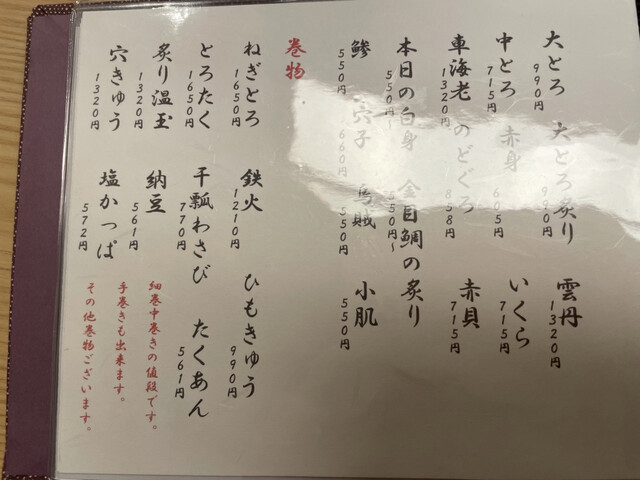 大とろ 990円 大とろ炙り 990円 雲丹 1320円
中とろ 715円 赤身 605円 いくら 715円
車海老 1320円 のどぐろ 858円 赤貝 715円
本日の白身 550円〜 金目鯛の炙り 550円〜
鯵 550円 穴子 660円 烏賊 550円 小肌 550円
巻物
ねぎとろ 1650円 鉄火 1210円 ひもきゅう 990円
とろたく 1650円 干瓢わさび 770円 たくあん 561円
炙り温玉 1320円 納豆 561円
穴きゅう 1320円 塩かっぱ 572円
細巻中巻きの値段です。
手巻きも出来ます。
その他巻物ございます。